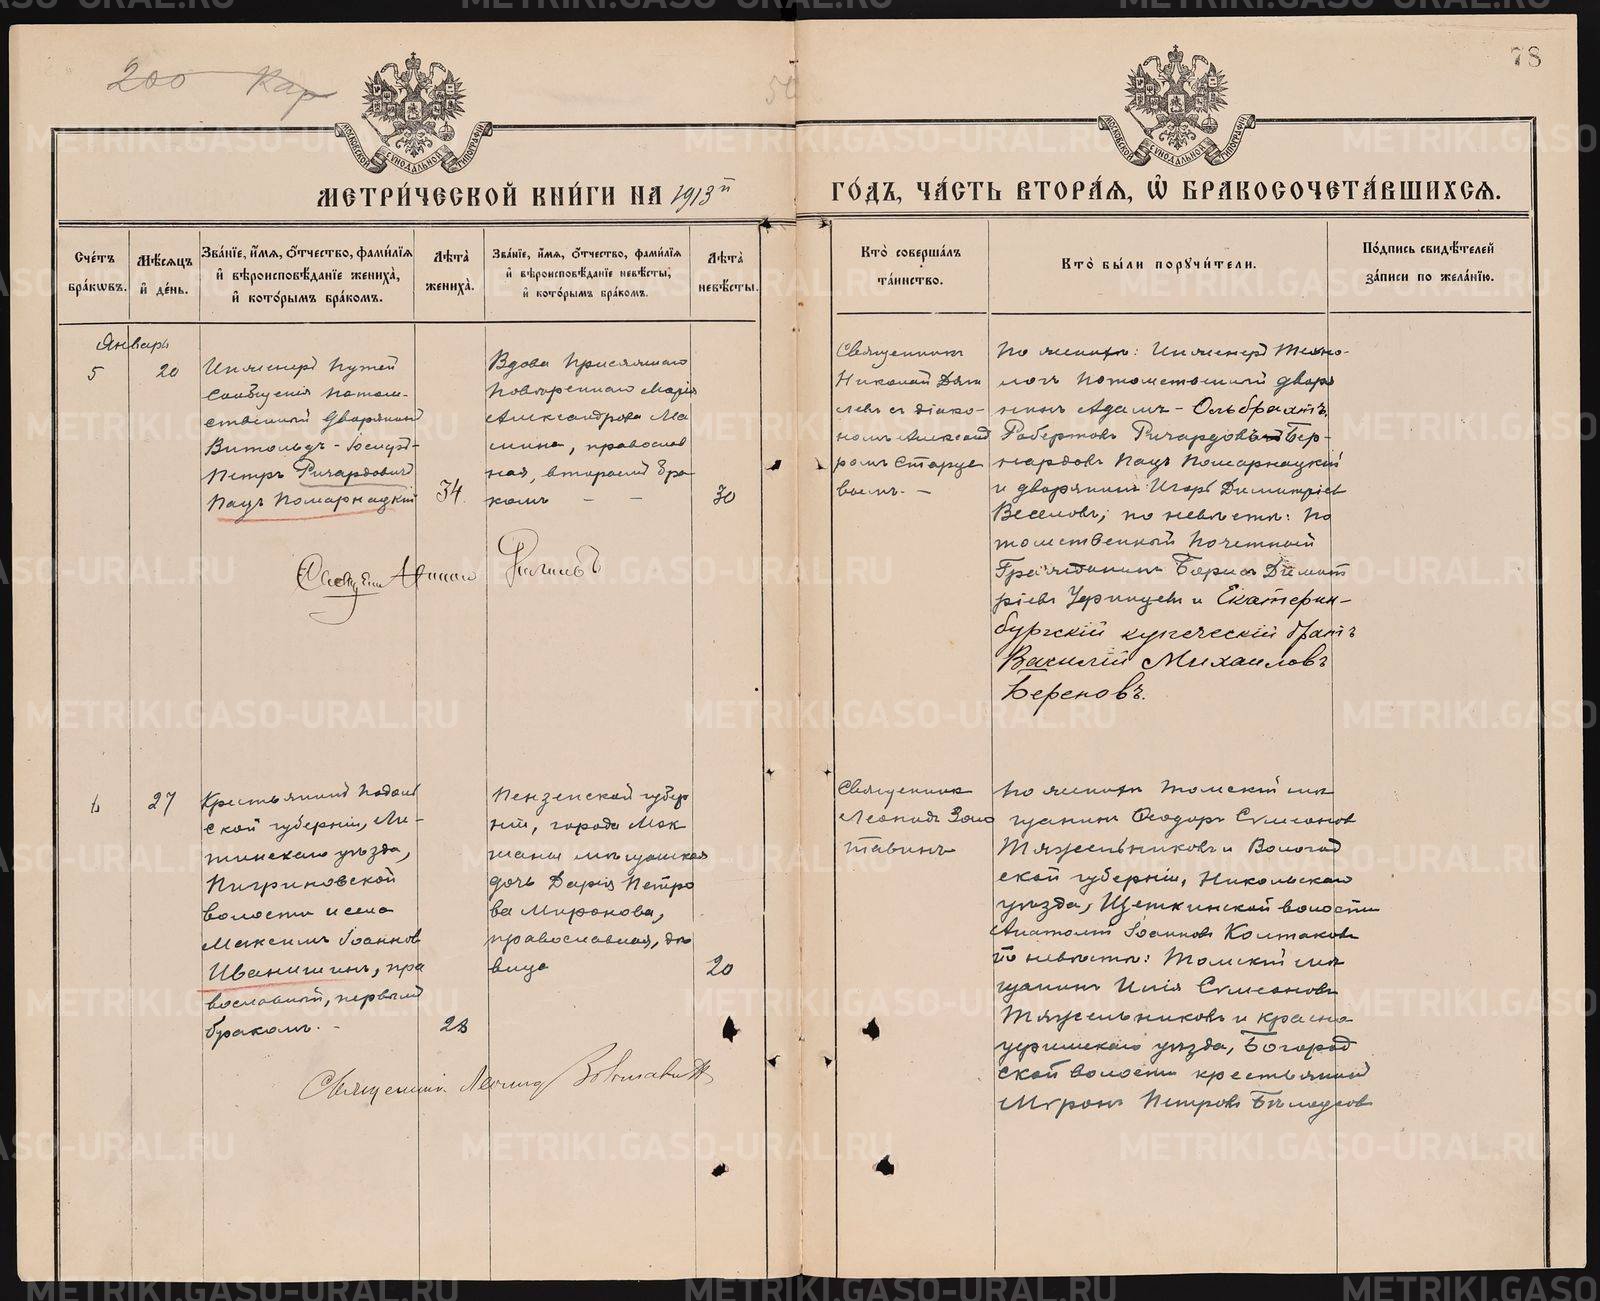 200 Кар
78
МЕТРИ́ЧЕСКОЙ КНИ́ГИ НА 1913й
ГО́ДЪ, ЧА́СТЬ ВТОРА́Я, Ѡ҆ БРАКОСОЧЕТА́ВШИХСЯ.
Сче́тъ бра́кѡвъ.
Мѣ́сяцъ и҆ де́нь.
Зва́нїе, и҆́мя, ѻ҆́тчество, фами́лїя и҆ вѣроисповѣ́данїе жениха̀, и҆ кото́рымъ бра́комъ.
Лѣ́та жениха̀.
Зва́нїе, и҆́мя, ѻ҆́тчество, фами́лїя и҆ вѣроисповѣ́данїе невѣ́сты, и҆ кото́рымъ бра́комъ.
Лѣ́та невѣ́сты.
Кто̀ соверша́лъ та́инство.
Кто̀ бы́ли поручи́тели.
По́дпись свидѣ́телей за́писи по жела́нїю.
Январь
5
20
Инженеръ Путей
Сообщенія потом-
ственный Дворянинъ
Витольдъ-Іосифъ-
Петръ Ричардовичъ
Пацъ Помарнацкій
34.
Вдова Присяжнаго
Повѣреннаго Марія
Александрова Ма
мина, православ
ная, вторымъ бра
комъ - -
30
Священникъ
Николай
съ діако-
номъ Александ
ромъ Старце
вымъ. -
По женихѣ: Инженеръ Техно-
логъ потомственный дворя
нинъ Адамъ-Ольбрахтъ
Робертовъ Ричардовъ Бер-
нардовъ Пацъ Помарнацкій
и дворянинъ Игорь Димитріев
Веселовъ; по невѣстѣ: По
томственный Почетный
Гражданинъ Борисъ Димит
ріевъ и Екатерин-
бургскій купеческій братъ
Василій Михаиловъ
Береновъ.
6
27
Крестьянинъ Подоль
ской губерніи, Ли-
тинскаго уѣзда,
волости и села
Максимъ Іоанновъ
Иванишинъ, пра
вославный, первымъ
бракомъ. -
28
Пензенской губер
ніи, города Мок
шана мѣщанская
дочь Дарія Петро
ва Миронова,
православная, дѣ
вица
20
Священникъ
Леонидъ Золо
тавинъ
По женихѣ Томскій мѣ
щанинъ Ѳеодоръ Сѵмеоновъ
Тяжельниковъ и Вологод
ской губерніи, Никольскаго
уѣзда, Щеткинской волости
Анатолій Іоанновъ Колпаковъ
По невѣстѣ: Томскій мѣ
щанинъ Илія Сѵмеоновъ
Тяжельниковъ и Красно
уфимскаго уѣзда, Богород
ской волости крестьянинъ
Миронъ Петровъ
Священникъ Леонидъ Золотавинъ
METRIKI.GASO-URAL.RU